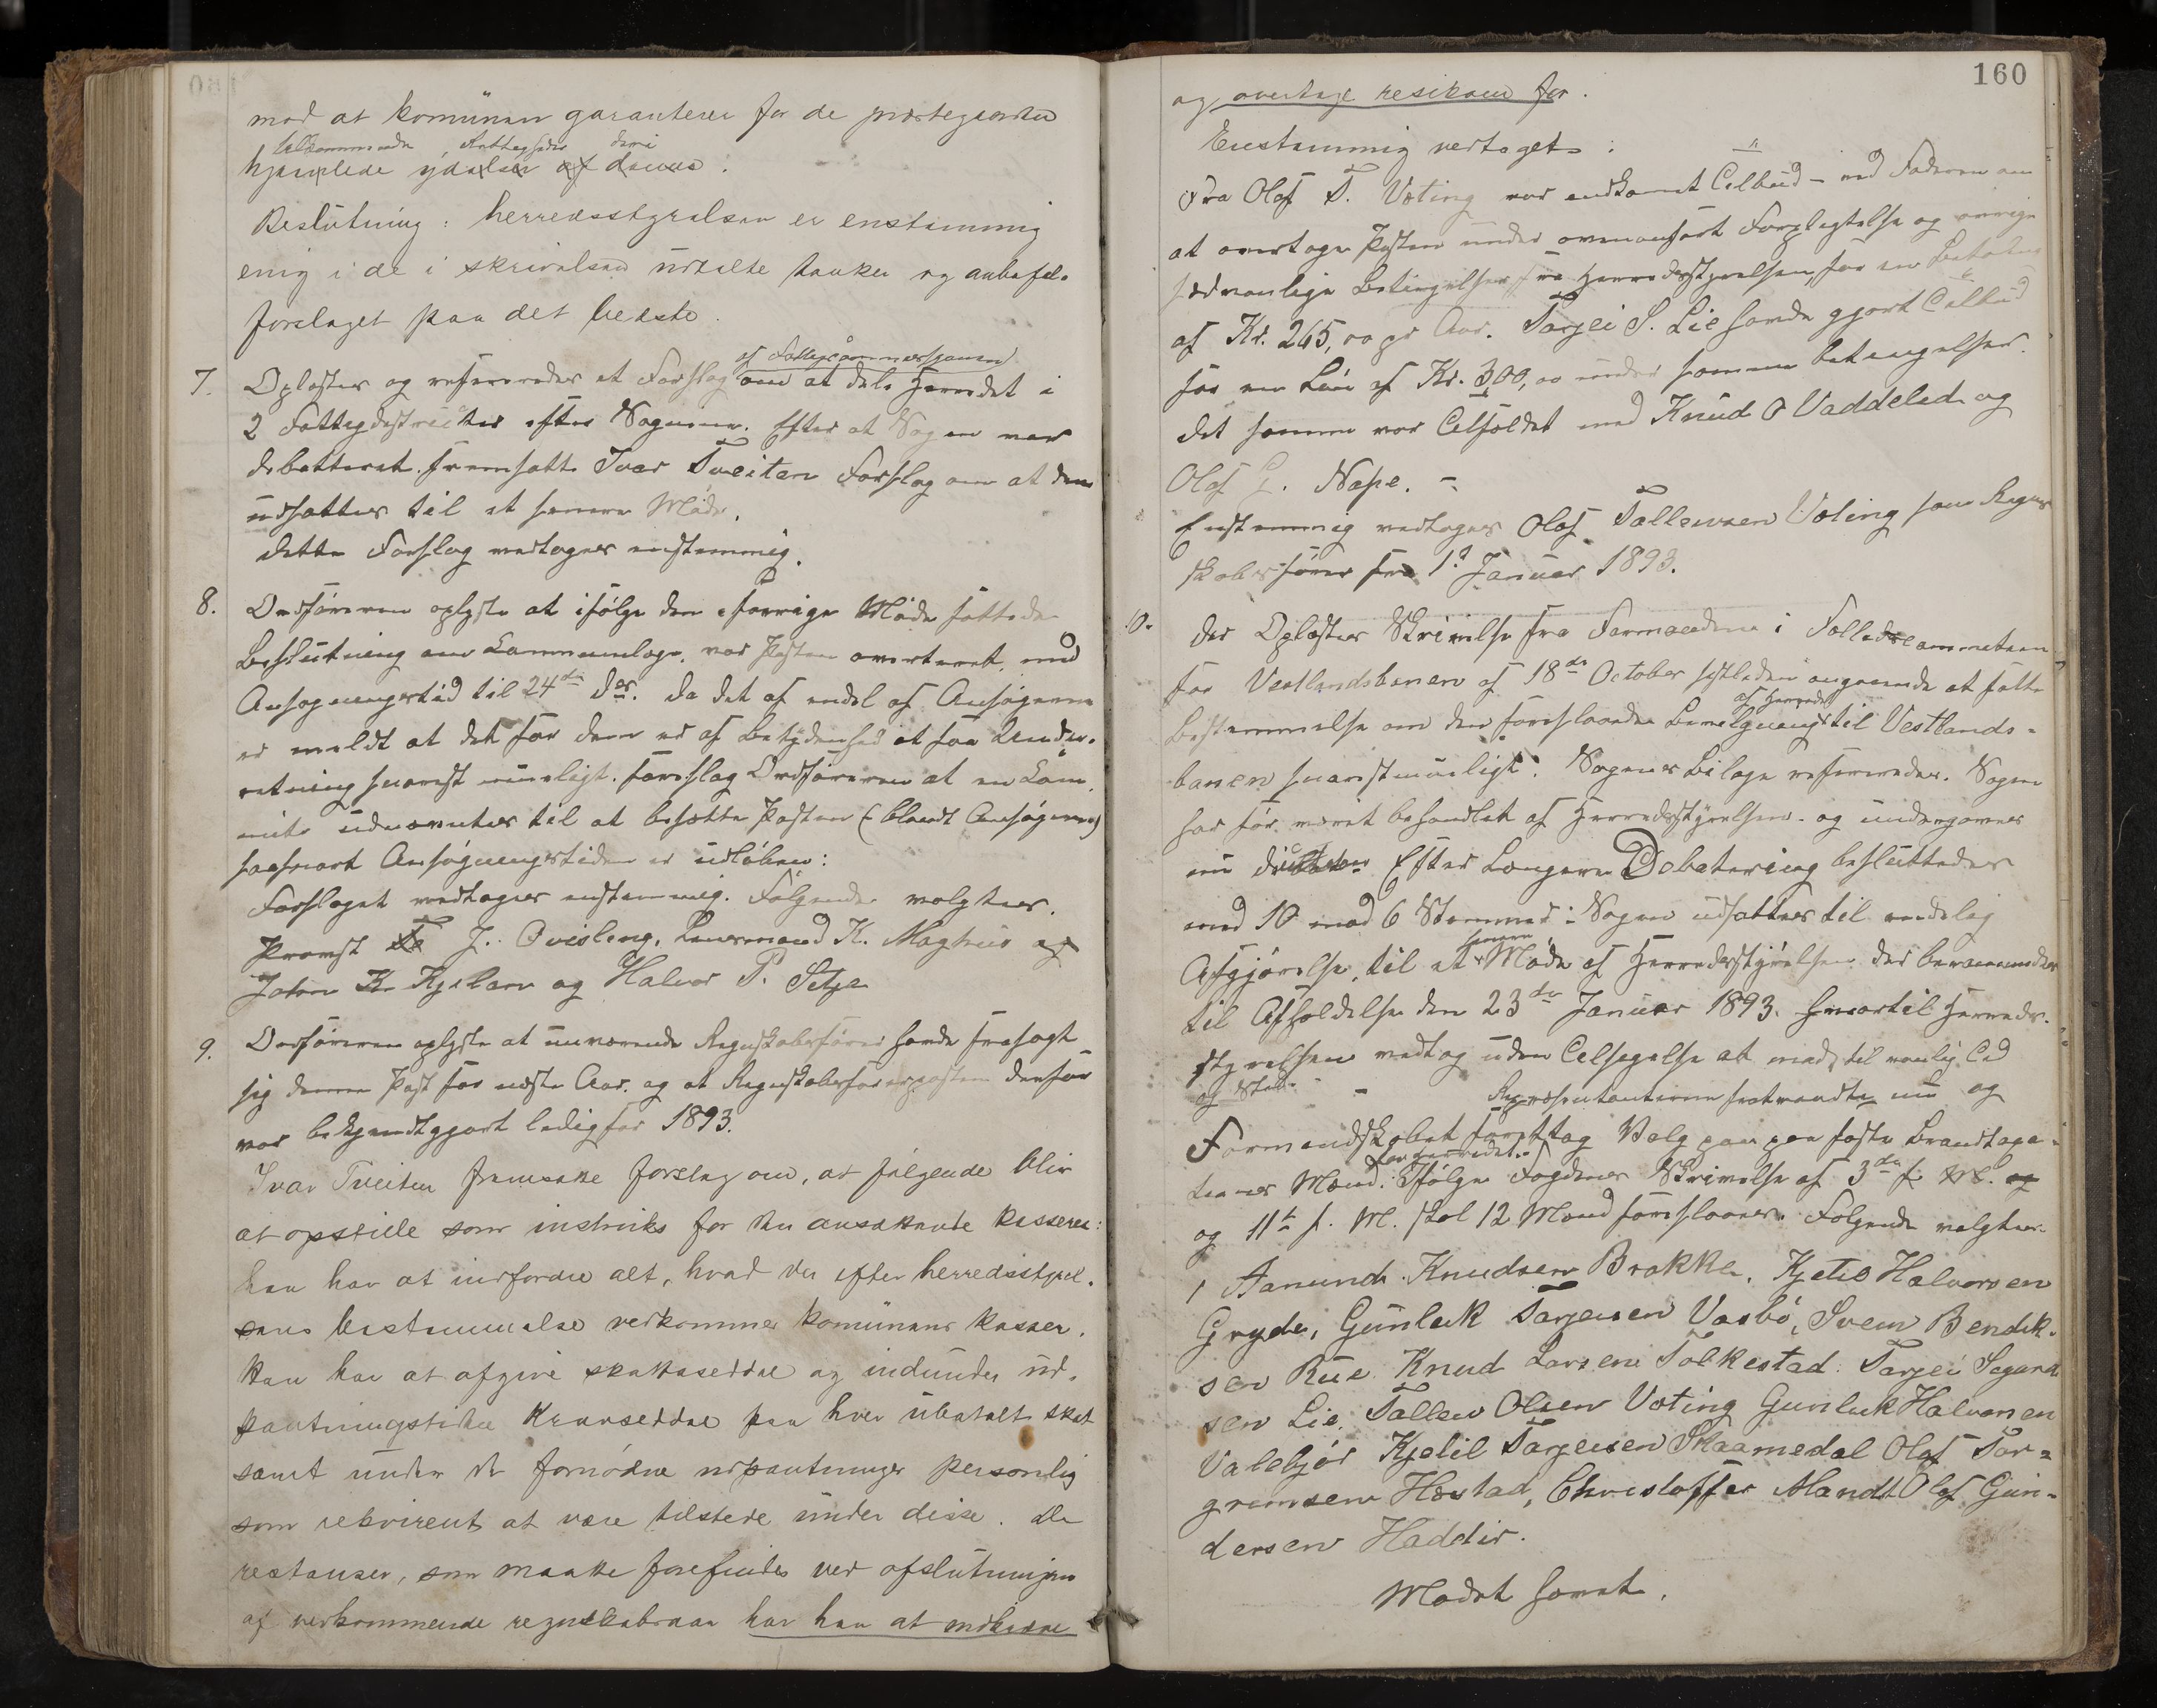 mod at komünen garanterer for de prestegaarden
tilkommende Rettigheder deri
hjemlede ydelser af denne.
Beslutning: herredsstyrelsen er enstemmig
enig i de i skrivelsen udtalte tanker og anbefal.
forslaget paa det bedste.
af Fattigcommissionen
7. Oplæstes og refereredes et Forslag om at dele Herredet i
2 Fattigdistrikter efter Sognene. Efter at Sagen var
debatteret fremsatte Ivar Tveitan Forslag om at den
udsættes til et senere Møde.
dette Forslag vedtages enstemmig.
8. Ordføreren oplyste at ifølge den i forrige Møde fattede
Beslutning om Lommenlæge, var Posten averteret med
Ansøgningstid til 24de ds. Da det af endel af Ansøgerne
er meldt at det for dem er af Betydenhed at faa Under-
retning snarest muligt, foreslog Ordføreren at en Kom-
mite udnævntes til at besætte Posten (blandt Ansøgerne)
saasnart Ansøgningstiden er udløben:
Forslaget vedtages enstemmig. Følgende valgtes.
Provst J. Qvisling, Lensmand K. Maghus og
John K. Kjelarn og Halvor P. Setje
9. Ordføreren oplyste at nuværende Regnskabsfører havde frasagt
sig denne Post for næste Aar. og at Regnskabsførerposten derfor
var bekjendtgjort ledig for 1893.
Ivar Tveiten fremsatte forslag om, at følgende blir
at opstille som instruks for den ansættende kasserer:
han har at indfordre alt, hvad der efter herredsstyrel-
sens bestemmelse vedkommer komünens kasser.
han har at afgive skattesedler og indunder ud-
pantningstiden Kravsedler paa hver ubetalt skat
samt under de fornødne udpantninger personlig
som rekvirent at være tilstede under disse. De
restanser, som maatte forefindes ved afslutningen
af vedkommende regnskabsaar har han at indkræve
160
og overtage resikoen for.
Enstemmig vedtaget:
Fra Olaf T. Vøting var indkomet Tilbud – ved Faderen om
at overtage Posten under ovenanført Forpligtelse og øvrige
sædvanlige Betingelser fra Herredsstyrelsen, for en Betaling
af Kr. 265,00 pr Aar. Tarjei S. Lie havde gjort Tilbud
for en Løn af Kr. 300,00 under samme betingelser.
det samme var Tilfældet med Knud O Vaddeled og
Olaf G. Nape. –
Enstemmig vedtages Olaf Tallevsen Vøting som Regn-
skabsfører fra 1ste Januar 1893.
10. Der Oplæstes Skrivelse fra Formanden i Fælledskommiteen
for Vestlandsbanen af 18de October sistleden angaaende at fatte
af Herredet
Bestemmelse om den foreslaaede Bevilgning til Vestlands-
banen snarest muligt. Sagens Bilage refereredes. Sagen
har før været behandlet af Herredsstyrelsen og undergaves
nu Efter Længere Debatering besluttedes
med 10 mod 6 Stemmer: Sagen udsættes til endelig
senere
Afgjørelse, til et Møde af Herredsstyrelsen der berammedes
til Afholdelse den 23de Januar 1893. hvortil Herreds-
styrelsen vedtog uden Tilsigelse at møde til vanlig Tid
og Sted. – Repræsentanterne fratraadte nu og
Formandskabet foretog Valg paa faste Brandtaxa-
for Herredet
tionens Mænd. Ifølge Fogdens Skrivelse af 3de f. M. og
og 11te f. M. skal 12 Mænd foreslaaes. Følgende valgtes
1 Aanund Knudsen Brokke, Kjetil Halvorsen
Gryde, Günleik Tarjeisen Vasbø, Svein Bendik-
sen Rüe Knud Larsen Tolkestad. Tarjei Segurd
sen Lie, Tallev Olsen Vøting Gunleik Halvorsen
Valebjør Kjetil Tarjeisen Skaamedal Olaf Tor-
grimsen Hæstad, Christoffer Mandt Olaf Gün-
dersen Haddeir.
Mødet hævet.